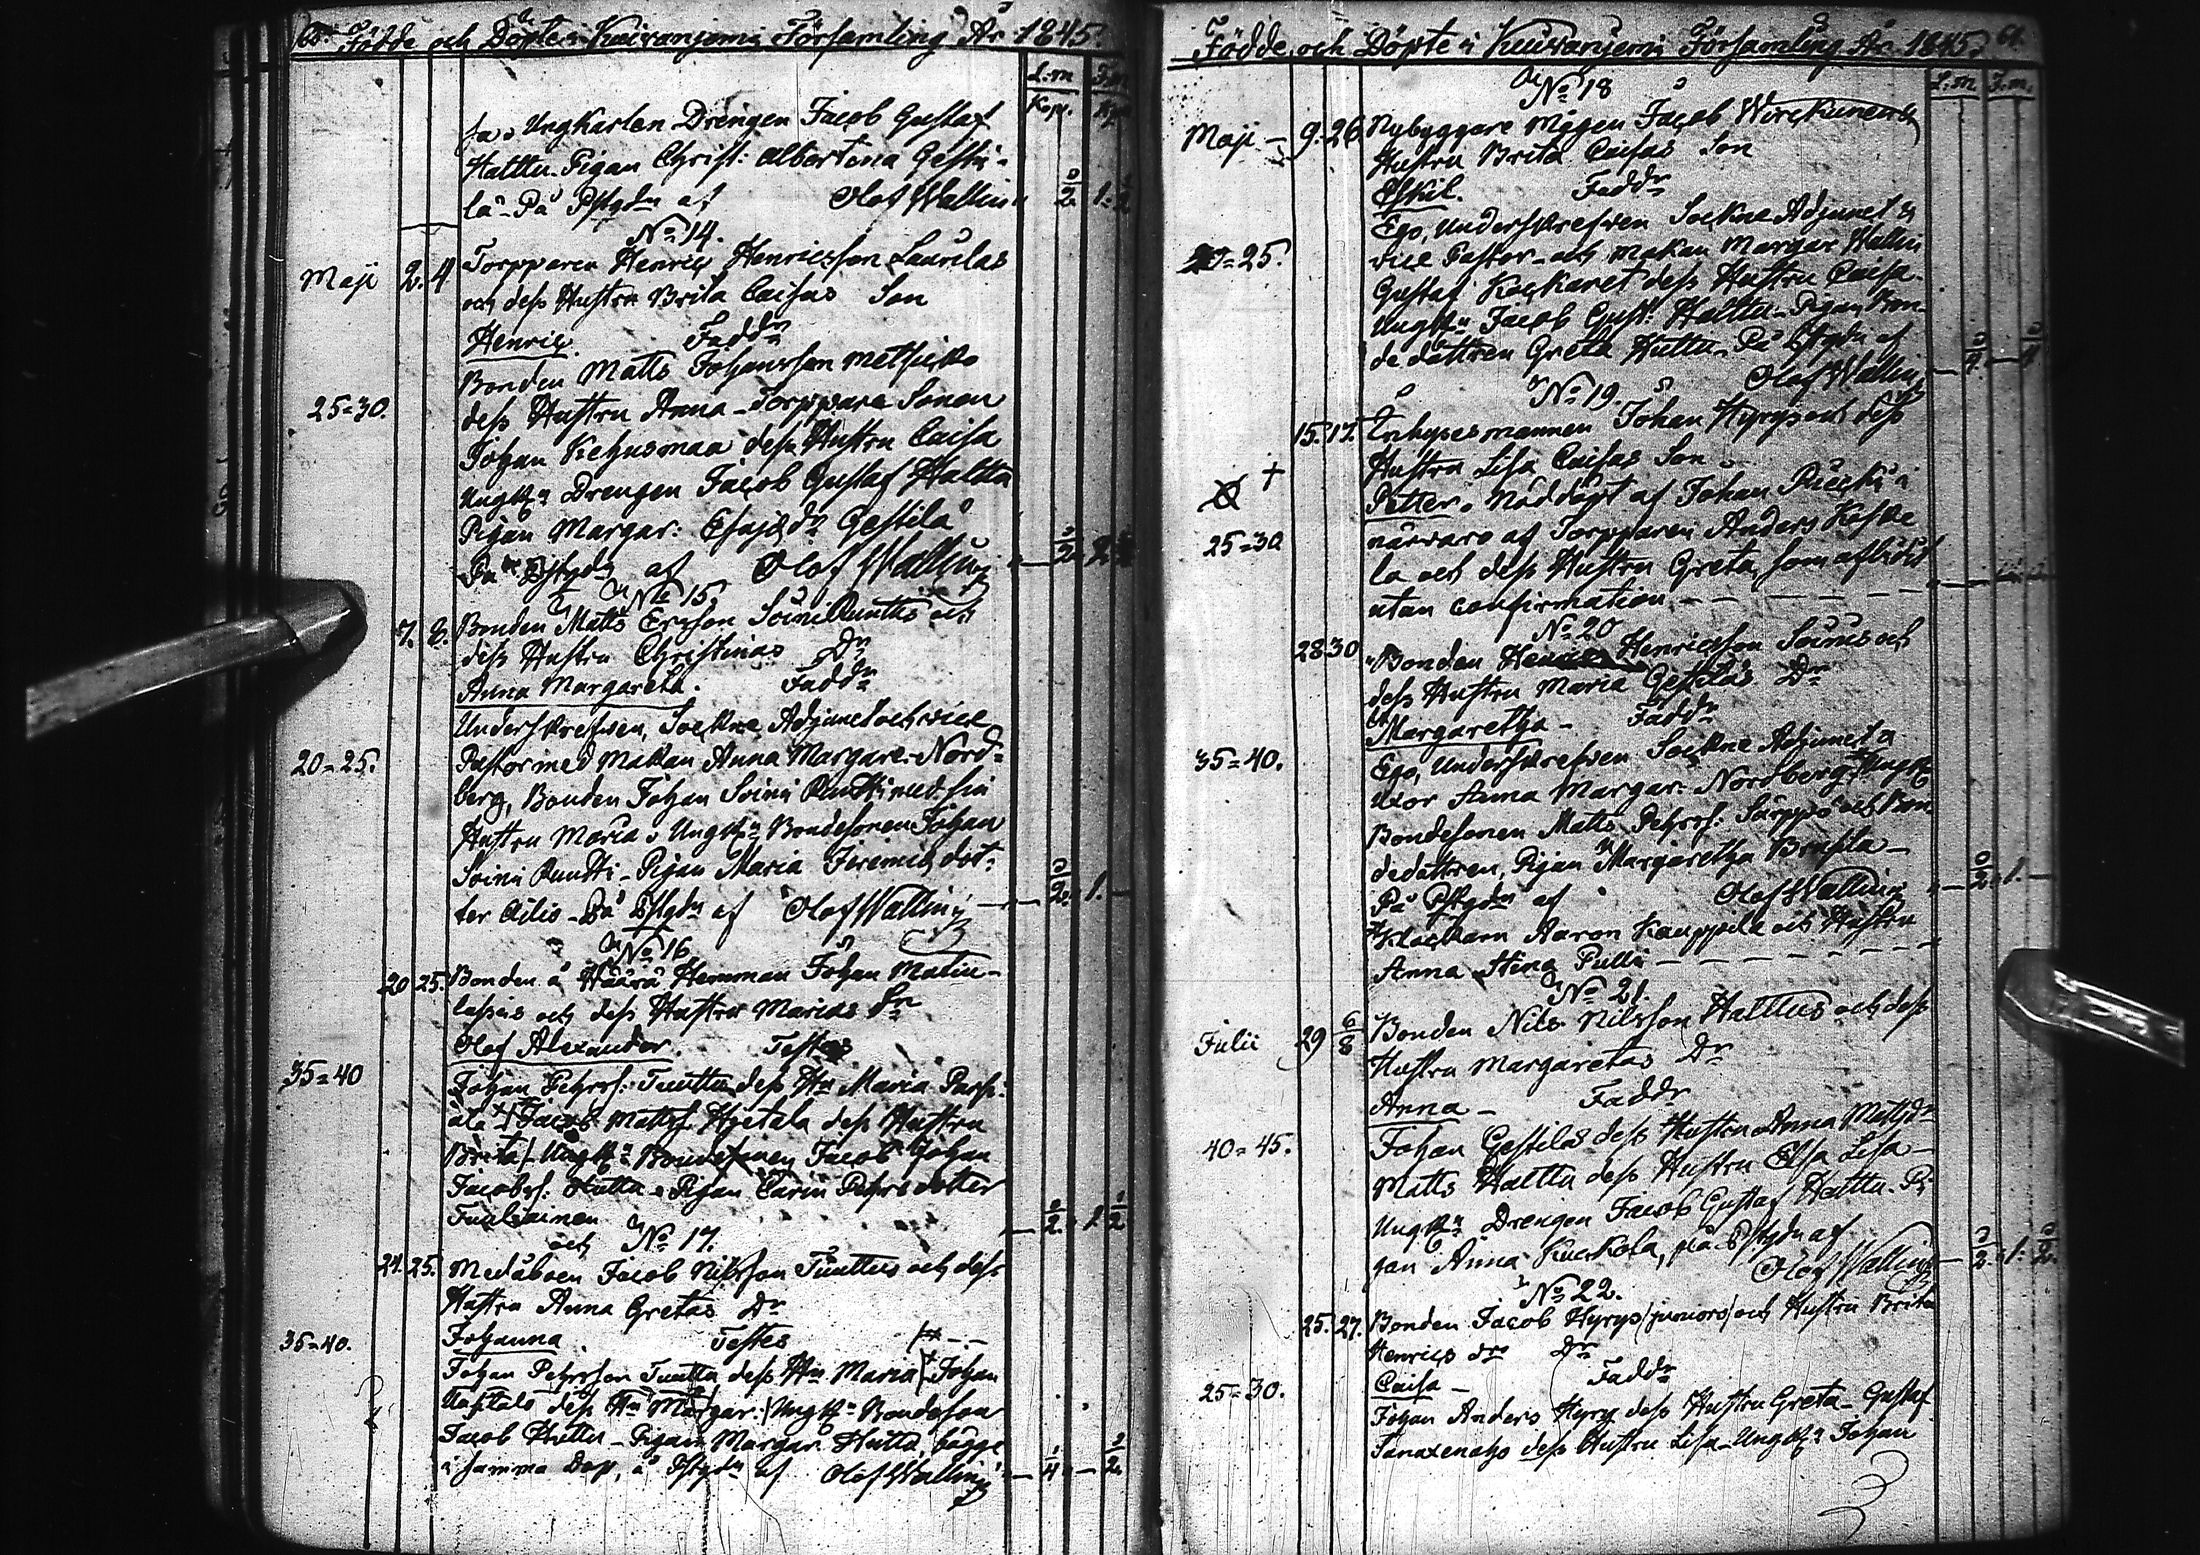 60. Födde och Döpte i Kuivaniemi Församling År 1845.
L.m. F.m.
Kop. Kop.
Ungkarlen Drengen Jacob Gustaf
Halttu. Pigan Christ: Albertina Gesti-
lä. På Pstgdn af Olof Wallin
2. 1. 2
No 14.
Maji 2. 4 Torpparen Henric Henricsson Laurilas
och dess Hustru Brita Caisas Son
Henric. Faddr
Bonden Matts Johansson
25=30. dess Hustru Anna - Torppare Sonen
Johan Kehusmaa dess Hustru Caisa
Ungkn Drengen Jacob Gustaf Haltta
Pigan Margar: Esajædr Gestilä
På Pstgdn af Olof Wallin
No 15.
7. 8. Bonden Matts Ersson Soini Runttis och
dess Hustru Christinas Dr
Anna Margareta. Faddr
Underskrefven, Sockne Adjunct och vice
20=25. Pastor med Makan Anna Margare. Nord-
berg, Bonden Johan Soini Runtti med sin
Hustru Maria. Ungkn Bondesonen Johan
Soini Runtti - Pigan Maria Jeremiædot-
ter Ailio - På Pstgdn af Olof Wallin
2. 1. -
No 16
20 25. Bonden å Hemman Johan Matin-
lassis och dess Hustru Marias Sn
Olof Alexander. Testes
35=40 Johan Pehrs. Tuuttu dess Hu Maria
Jacob Matts. Hjetala dess Hustru
Brita Ungkn Bondesonen Jacob Johan
Jacobs. Huttu - Pigan Carin Pehrsdotter
och No 17.
24. 25. Medåboen Jacob Nilsson Tuuttus och dess
Hustru Anna Gretas Dr
Johanna Testes
35=40. Johan Pehrsson Tuuttu dess Hu Maria Johan
dess Hu Margar. Ungkn Bondeson
Jacob Huttu - Pigan Margar. Huttu, bägge
i samma Dop, å Pstgdn af Olof Wallin
Födde och Döpte i Kuivaniemi Församling År 1845. 61.
L.m. F.m.
No 18
Maji 9. 26 Nybyggare Mågen Jacob Wirckunens
Hustru Brita Caisas Son
Eskil. Faddr
Ego, Underskrefven Sockne Adjunct &
20=25. vice Pastor och Makan Margar. Wallin
Gustaf Kockaret dess Hustru Caisa
Ungkn Jacob Gust: Halttu - Pigan Bon-
dedottren Greta Huttu - På Pstgdn af
Olof Wallin
No 19.
15. 17. Inhysesmannen Johan Hyrys och dess
Hustru Lisa Caisas Son
Petter. Nöddöpt af Johan i
25=30 närvaro af Torpparen Anders Koske
la och dess Hustru Greta, som aflidit
utan confirmation. - - -
No 20
28 30 Bonden Henricsson och
dess Hustru Maria Gestilas Dr
Margaretha - Faddr
35=40. Ego, Underskrefven Sockne Adjunct &
uxor Anna Margar. Nordberg Ungkn
Bondesonen Matts Pehrss: och Bon-
dedottren, Pigan Margaretha
På Pstgdn af Olof Wallin
2. 1. -
Klockarn Aaron Kauppila och Hustru
Anna Stina - - -
No 21.
Julii 29 6/8 Bonden Nils Nilsson Halttus och dess
Hustru Margaretas Dr
Anna - Faddr
40=45. Johan Gestilas dess Hustru Anna Mattsdr
Matts Halttu dess Hustru Elsa Lisa -
Ungkn Drengen Jacob Gustaf Halttu. Pi-
gan Anna Kuckola, på Pstgdn af
Olof Wallin
No 22.
25. 27. Bonden Jacob Hyrys (juniors) och Hustru Brita
Henrics dr Dr
Caisa - Faddr
25=30. Johan Anders Hyry dess Hustru Greta - Gustaf
dess Hustru Lisa - Ungkn Johan